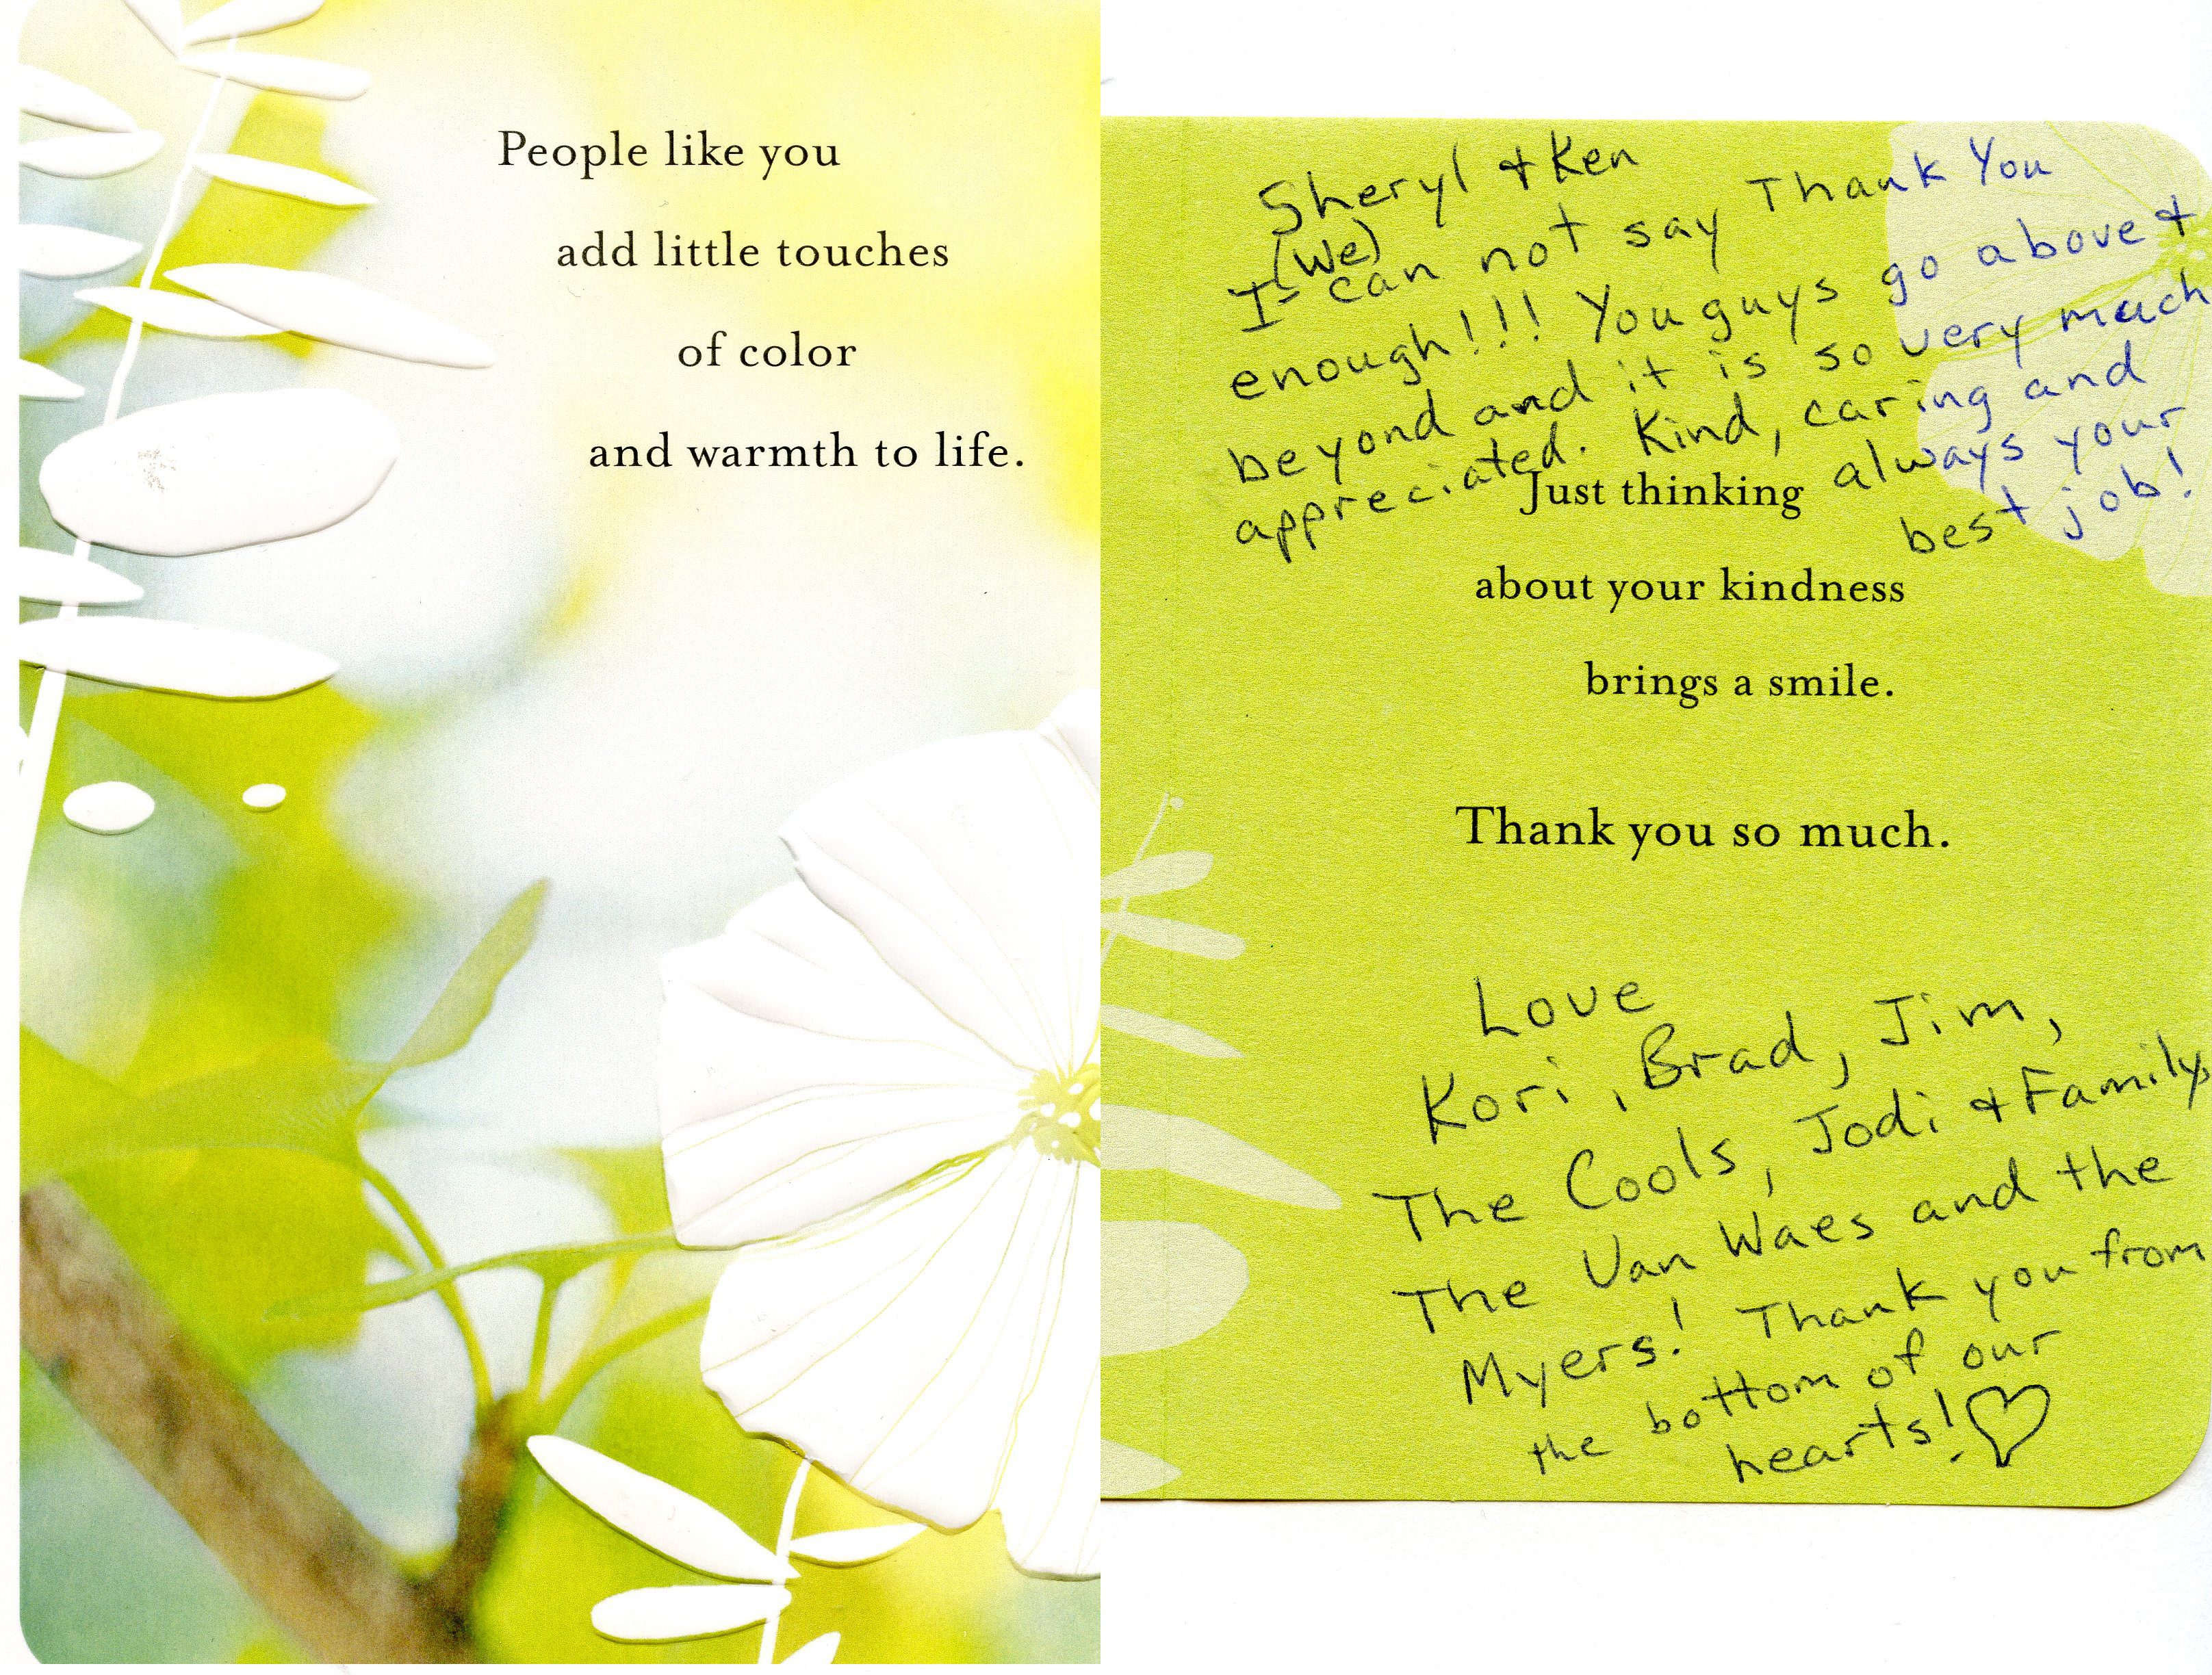 People like you
add little touches
of color
and warmth to life.
Sheryl + Ken
(We)
I can not say Thank You
enough!!! You guys go above +
beyond and it is so very much
appreciated. Kind, caring and
always your
best job!
Just thinking
about your kindness
brings a smile.
Thank you so much.
Love
Kori, Brad, Jim,
The Cools, Jodi + Family,
The Van Waes and the
Myers! Thank you from
the bottom of our
hearts!